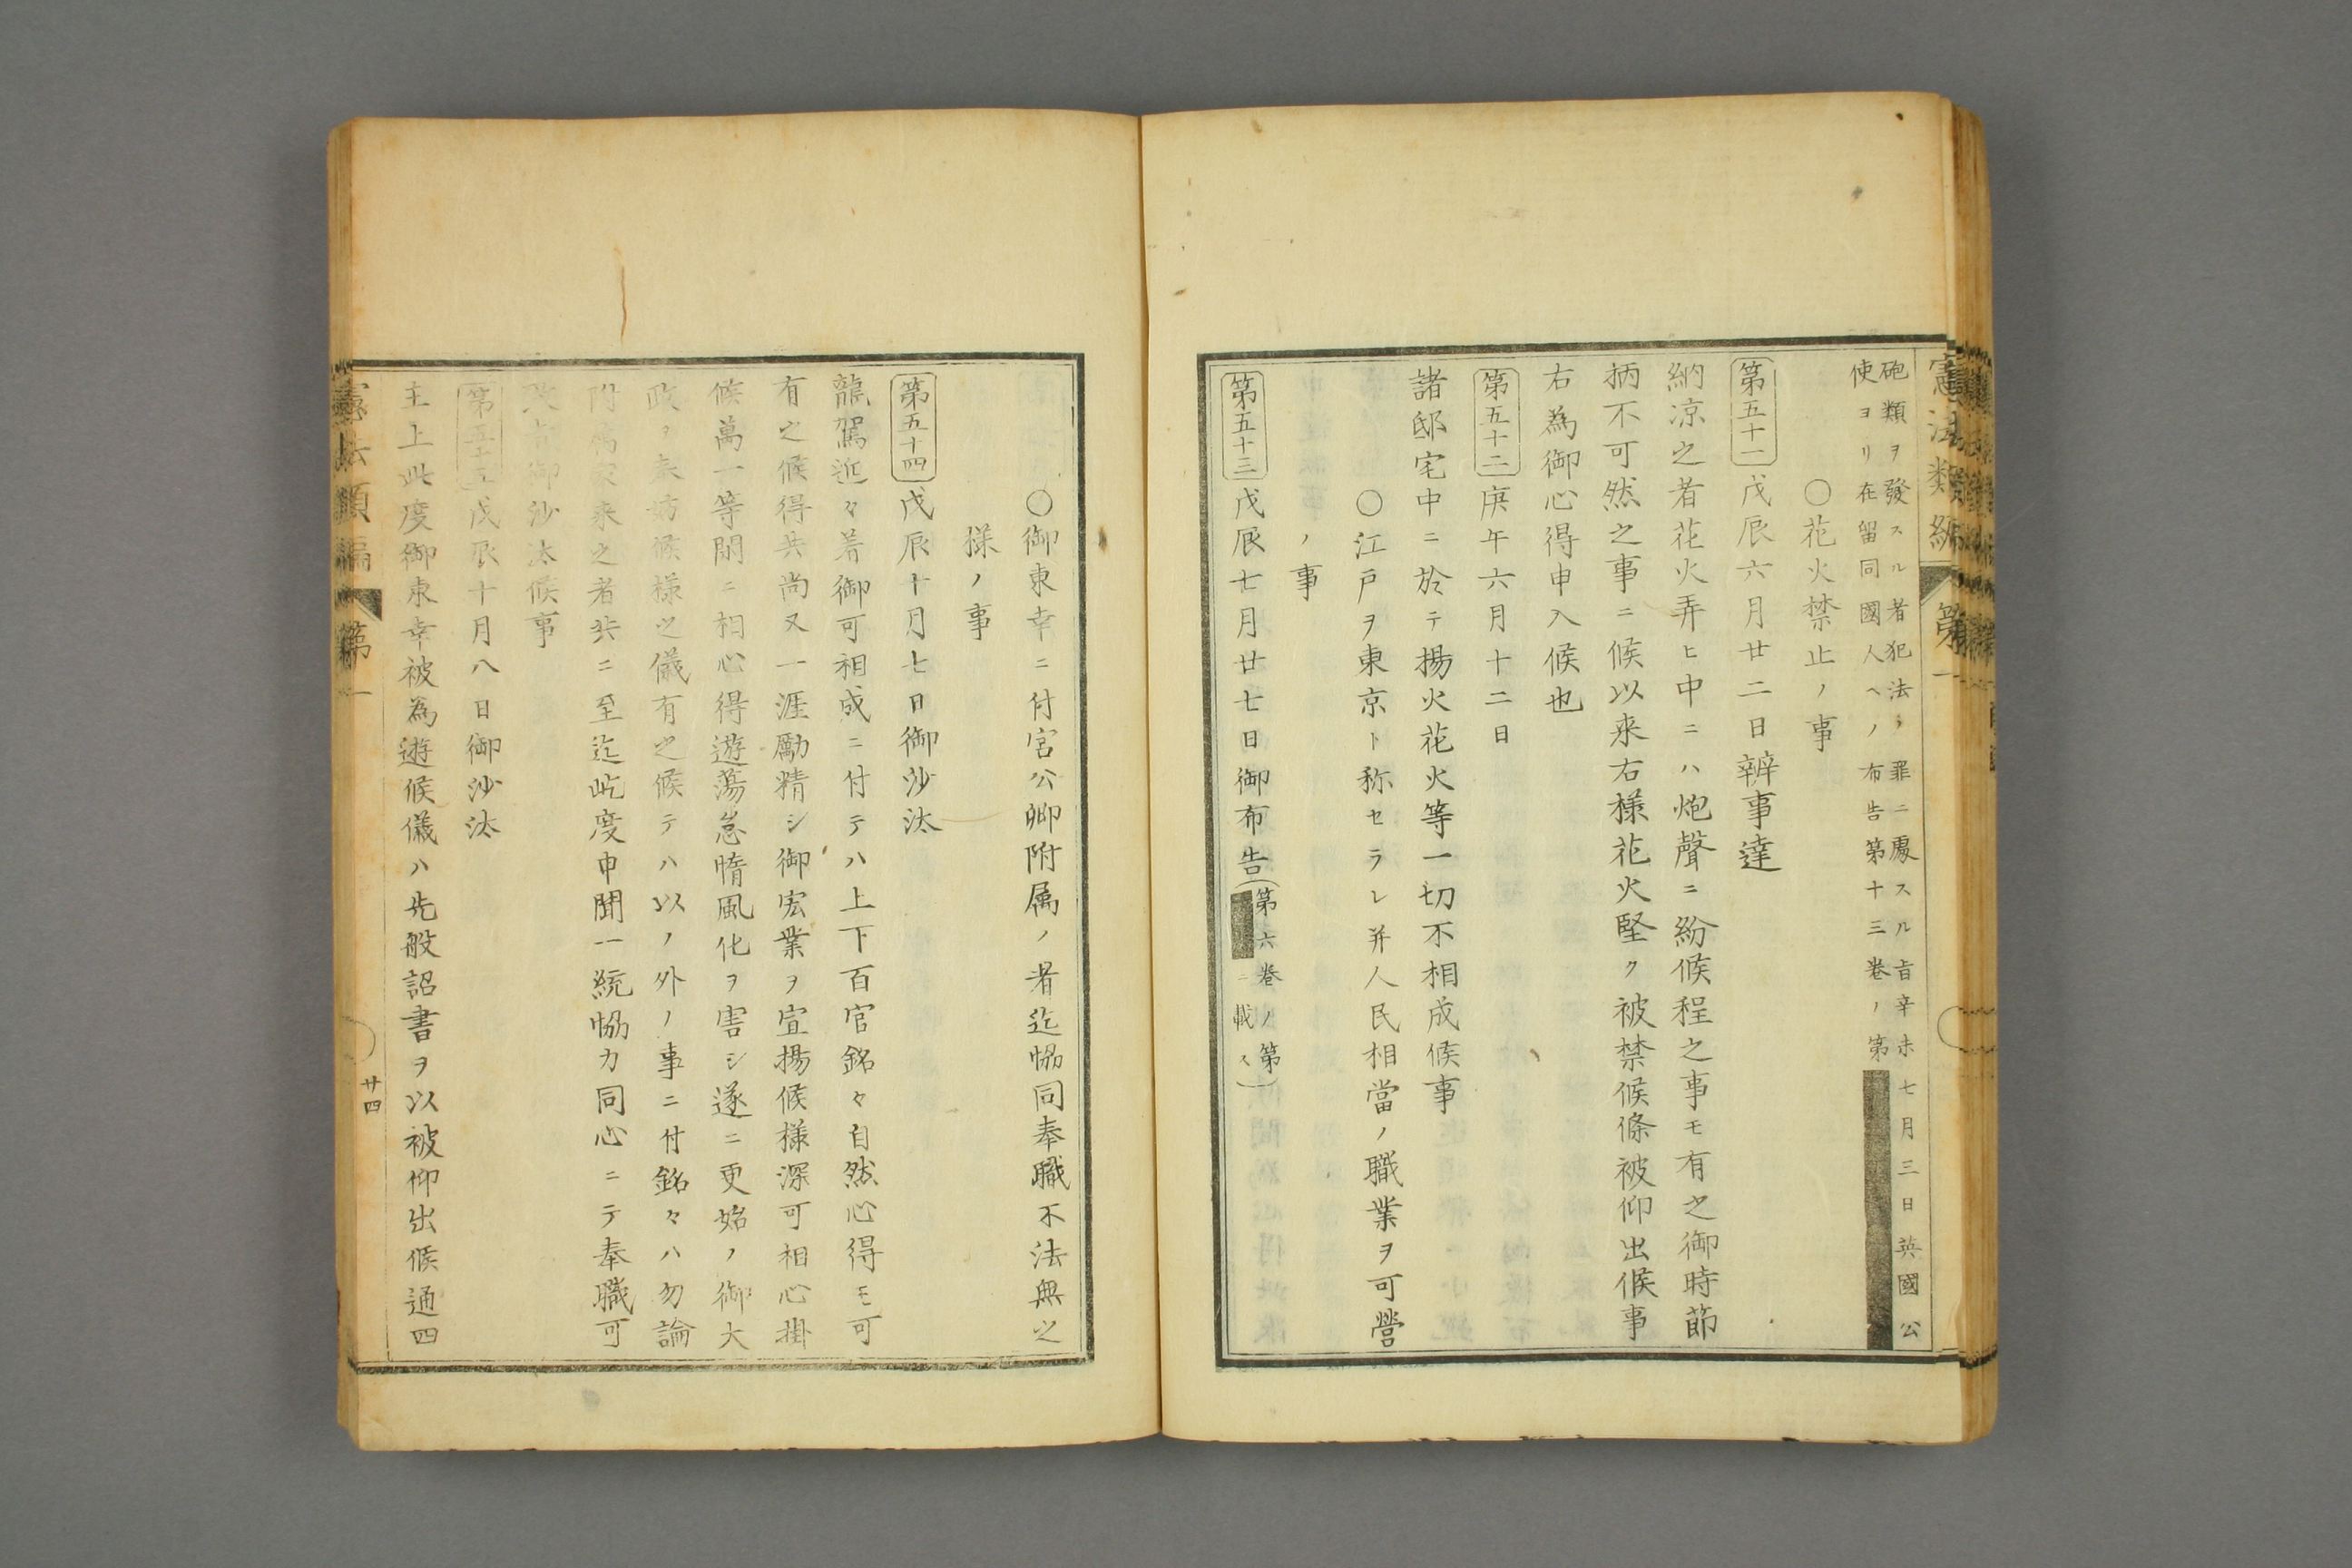 憲法類編 第一
砲類ヲ發スル者犯法ノ罪ニ處スル旨辛未七月三日英國公
使ヨリ在留同國人ヘノ布告第十三巻ノ第
○花火禁止ノ事
第五十一 戊辰六月廿二日辨事達
納凉之者花火弄ヒ中ニハ炮聲ニ紛候程之事モ有之御時節
柄不可然之事ニ候以来右様花火堅ク被禁候條被仰出候事
右為御心得申入候也
第五十二 庚午六月十二日
諸邸宅中ニ於テ揚火花火等一切不相成候事
○江戸ヲ東京ト称セラレ并人民相當ノ職業ヲ可營
ノ事
第五十三 戊辰七月廿七日御布告(第六巻ノ第
ニ載ス)
○御東幸ニ付宮公卿附属ノ者迄恊同奉職不法無之
様ノ事
第五十四 戊辰十月七日御沙汰
龍駕近々着御可相成ニ付テハ上下百官銘々自然心得モ可
有之候得共尚又一涯勵精シ御宏業ヲ宣揚候様深可相心掛
候萬一等閑ニ相心得遊蕩怠惰風化ヲ害シ遂ニ更始ノ御大
政ヲ妨候様之儀有之候テハ以ノ外ノ事ニ付銘々ハ勿論
附属家来之者共ニ至迄屹度申聞一統恊力同心ニテ奉職可
致旨御沙汰候事
第五十五 戊辰十月八日御沙汰
主上此度御東幸被為遊候儀ハ先般詔書ヲ以被仰出候通四
憲法類編 第一
廿四